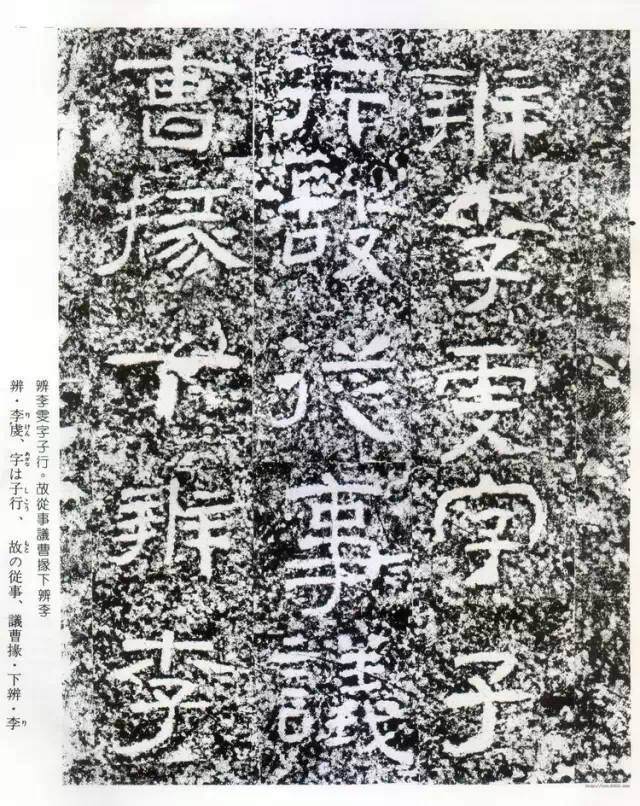 辨李雯字子
行故從事議
曹掾下辨李
辨李雯字子行。故從事議曹掾下辨李
辨・李虔、字は子行、故の從事、議曹掾・下辨・李